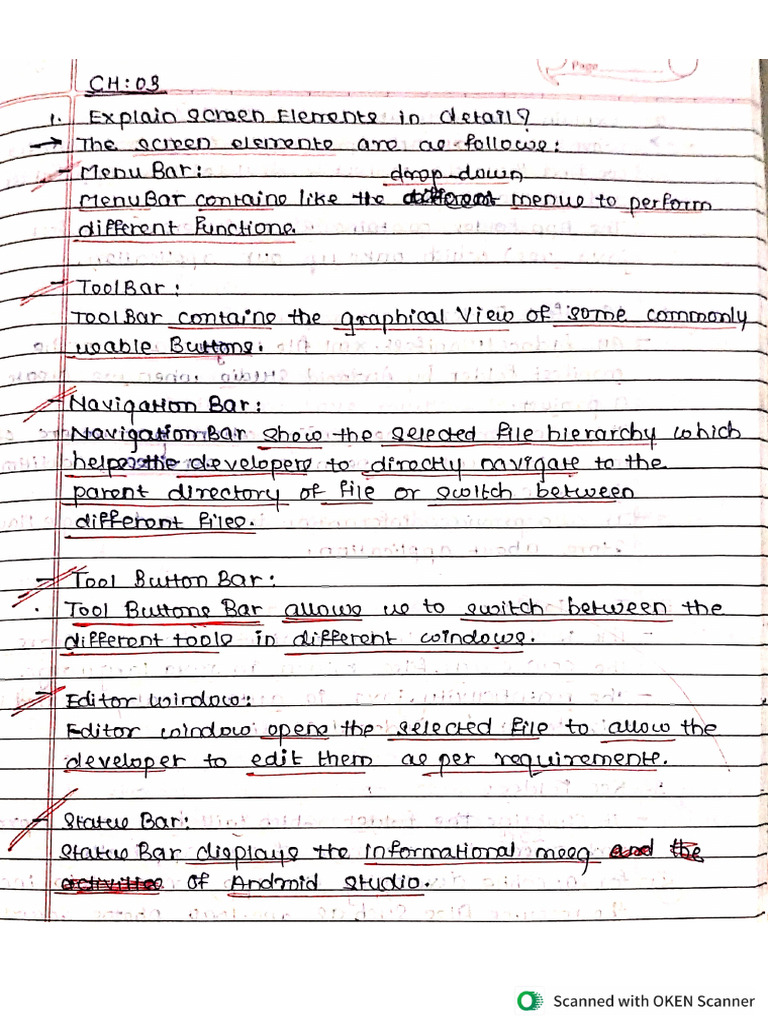 Page
CH:03
1. Explain Screen Elements in detail?
→ The screen elements are as follows:
- Menu Bar:
drop-down
Menu Bar contains like the menus to perform
different Functions.
- Tool Bar:
Tool Bar contains the graphical View of some commonly
usable Buttons.
- Navigation Bar:
Navigation Bar show the selected file hierarchy which
helps the developers to directly navigate to the
parent directory of file or switch between
different files.
- Tool Button Bar:
. Tool Buttons Bar allows us to switch between the
different tools in different windows.
- Editor window:
Editor window opens the selected file to allow the
developer to edit them as per requirements.
- Status Bar:
Status Bar displays the informational mesg and the
activities of Android Studio.
Scanned with OKEN Scanner